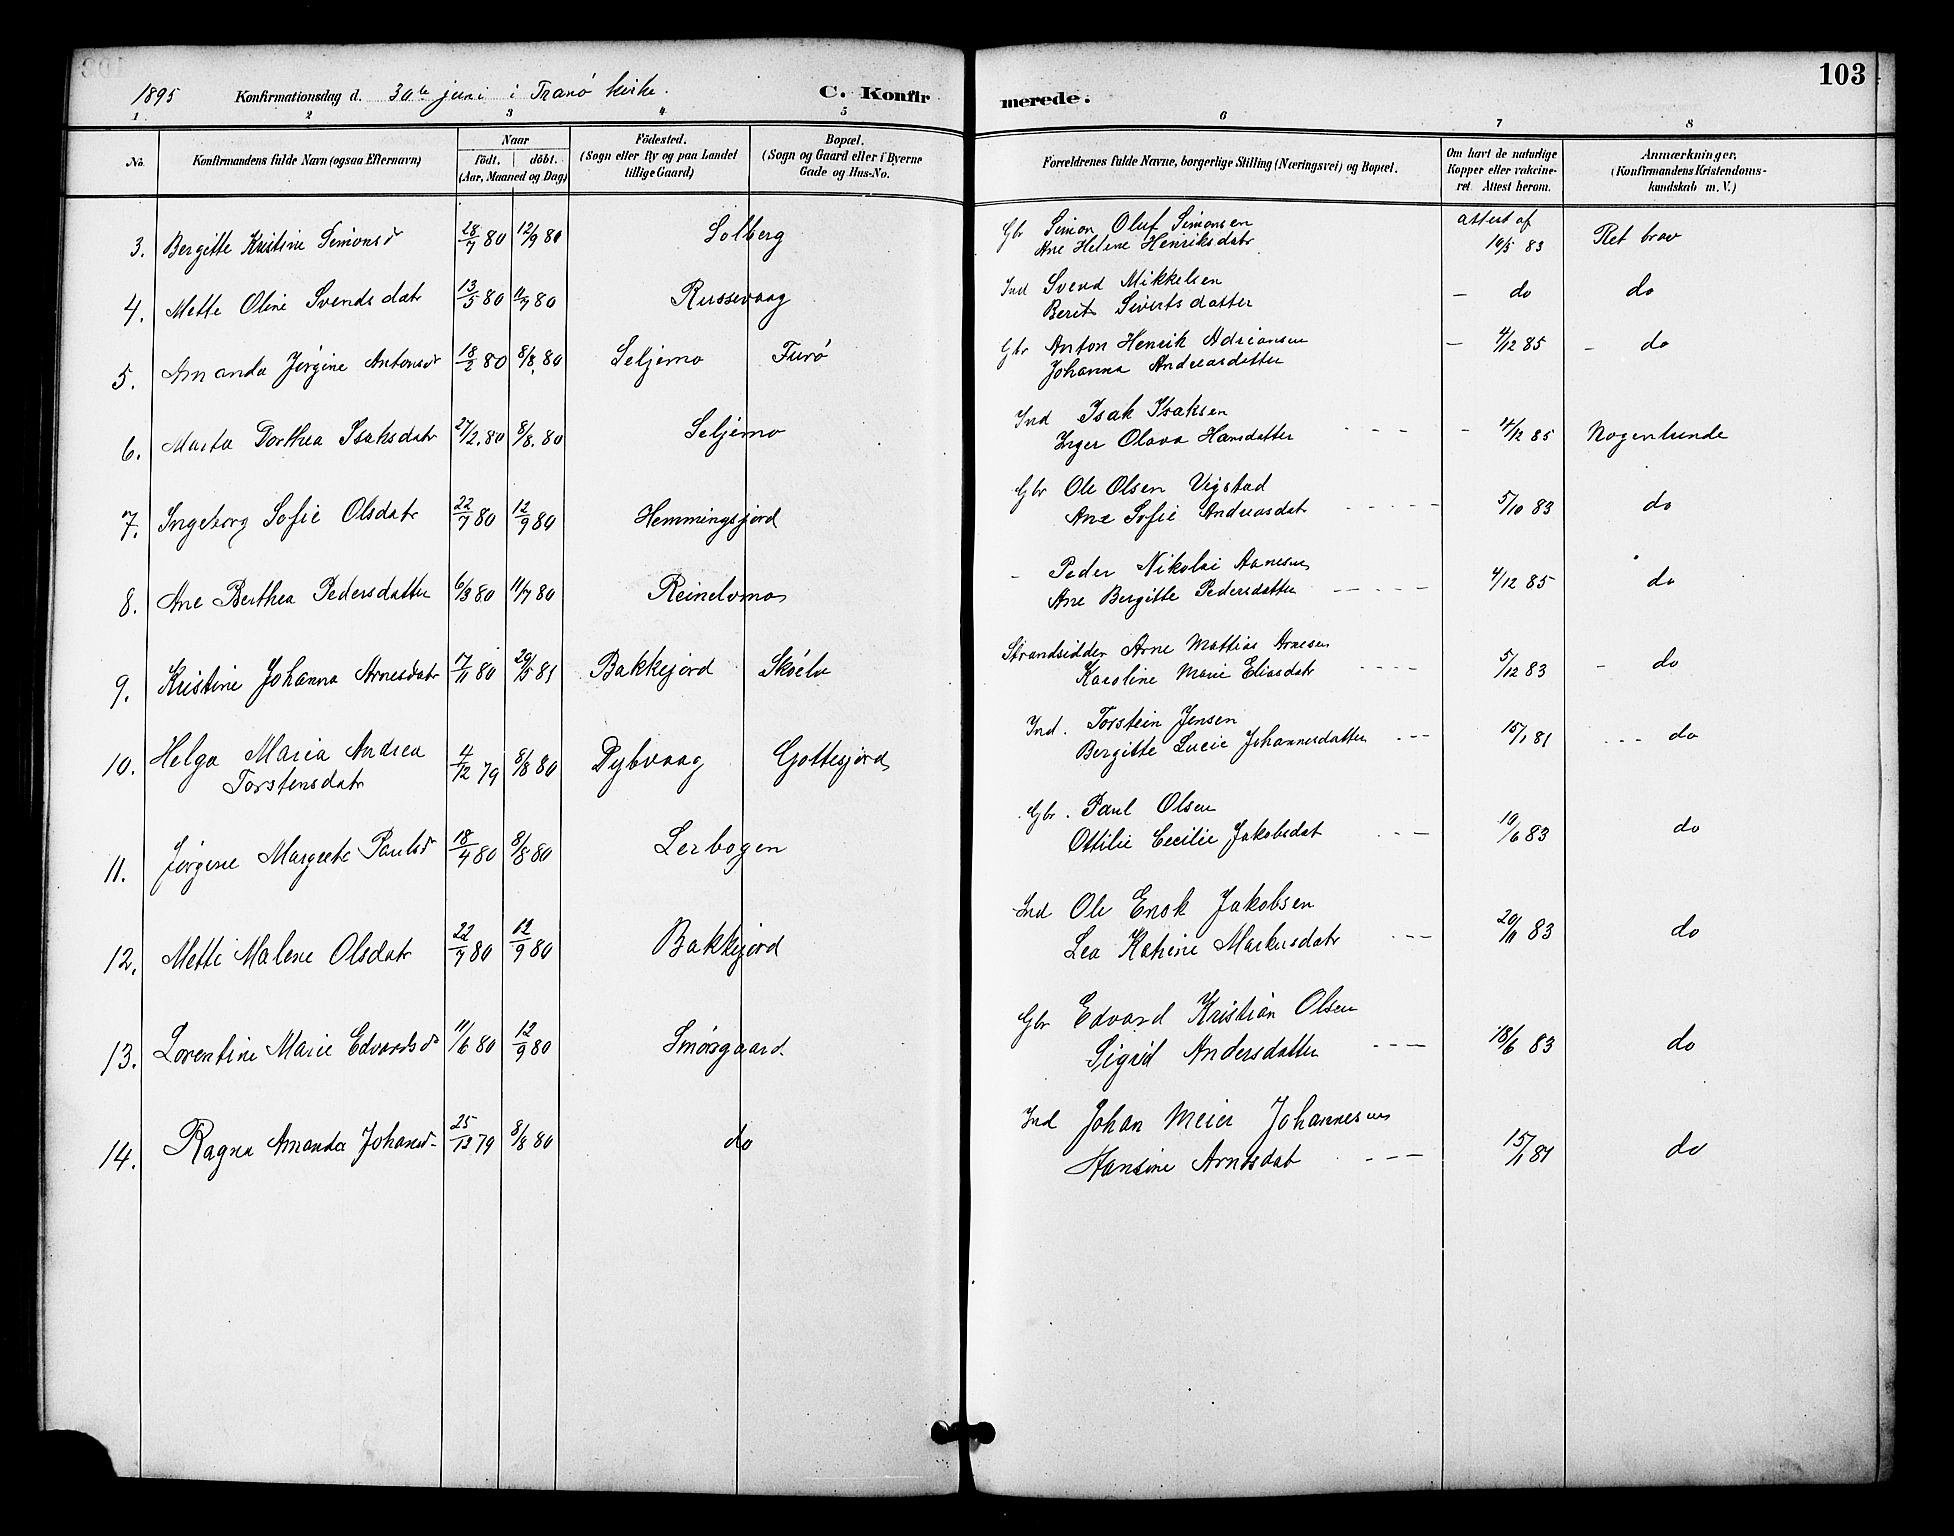 103
1895 Konfirmationsdag d. 30te juni i Tranø kirke. C. Konfir merede.
1 2 3 4 5 6 7 8
No. Konfirmandens fulde Navn (ogsaa Efternavn) Naar födt. döbt. (Aar, Maaned og Dag) Födested. (Sogn eller By og paa Landet tillige Gaard) Bopæl. (Sogn og Gaard eller i Byerne Gade og Hus-No. Forældrenes fulde Navne, borgerlige Stilling (Næringsvei) og Bopæl. Om havt de naturlige Kopper eller vakcineret. Attest herom. Anmærkninger, (Konfirmandens Kristendomskundskab m. V.)
3. Bergitte Kristine Simonsd 28/7 80 12/9 80 Solberg Gbr Simon Oluf Simonsen attest af
Ane Helene Henriksdatr 10/5 83 Ret brav
4. Mette Oline Svendsdatr 13/5 80 11/7 80 Russevaag Ind Svend Mikkelsen – do do
Berit Sivertsdatter
5. Amanda Jørgine Antonsdr 18/2 80 8/8 80 Seljemo Furø Gbr Anton Henrik Adriansen – 4/12 85 – do
Johanna Andreasdatter
6. Marta Dorthea Isaksdatr 27/2 80 8/8 80 Seljemo Ind Isak Isaksen
Inger Olava Hansdatter - - - - 4/12 85 Nogenlunde
7. Ingeborg Sofie Olsdatr 22/7 80 12/9 80 Hemmingsjord Gbr Ole Olsen Vigstad
Ane Sofie Andreasdatr - - - - - 5/10 83 do
8. Ane Berthea Pedersdatter 6/3 80 11/7 80 Reinelvmo - Peder Nikolai
Ane Bergitte Pedersdatter - - - - - 4/12 85 do
9. Kristine Johanna Arnesdatr 7/11 80 29/5 81 Bakkejord Skøelv Strandsidder Arne Mattias Arnesen
Karoline Marie Eliasdatr - - - - 5/12 83 – do
10. Helga Maria Andrea 4/12 79 8/8 80 Dybvaag Gottesjord Ind. Torstein Jensen
Torstensdatr Bergitte Lucie Johannesdatter - - - 15/1 81 - - - do
11. Jørgine Margrete Paulsdr 18/4 80 8/8 80 Lerbogen Gbr. Paul Olsen
Ottilie Cecilie Jakobsdat - - - 10/6 83 do
12. Mette Malene Olsdatr 22/7 80 12/9 80 Bakkejord Ind Ole Enok Jakobsen
Lea Katrine Markusdatr - - - 20/11 83 do
13. Lorentine Marie Edvardsdr 11/6 80 12/9 80 Smørsgaard. Gbr Edvard Kristian Olsen
Sigrid Andersdatter - - - 18/6 83 do
14. Ragna Amanda Johansd 25/12 79 8/8 80 do Ind Johan Meier Johannesen
Hansine Arntsdat - - - 15/1 81 do